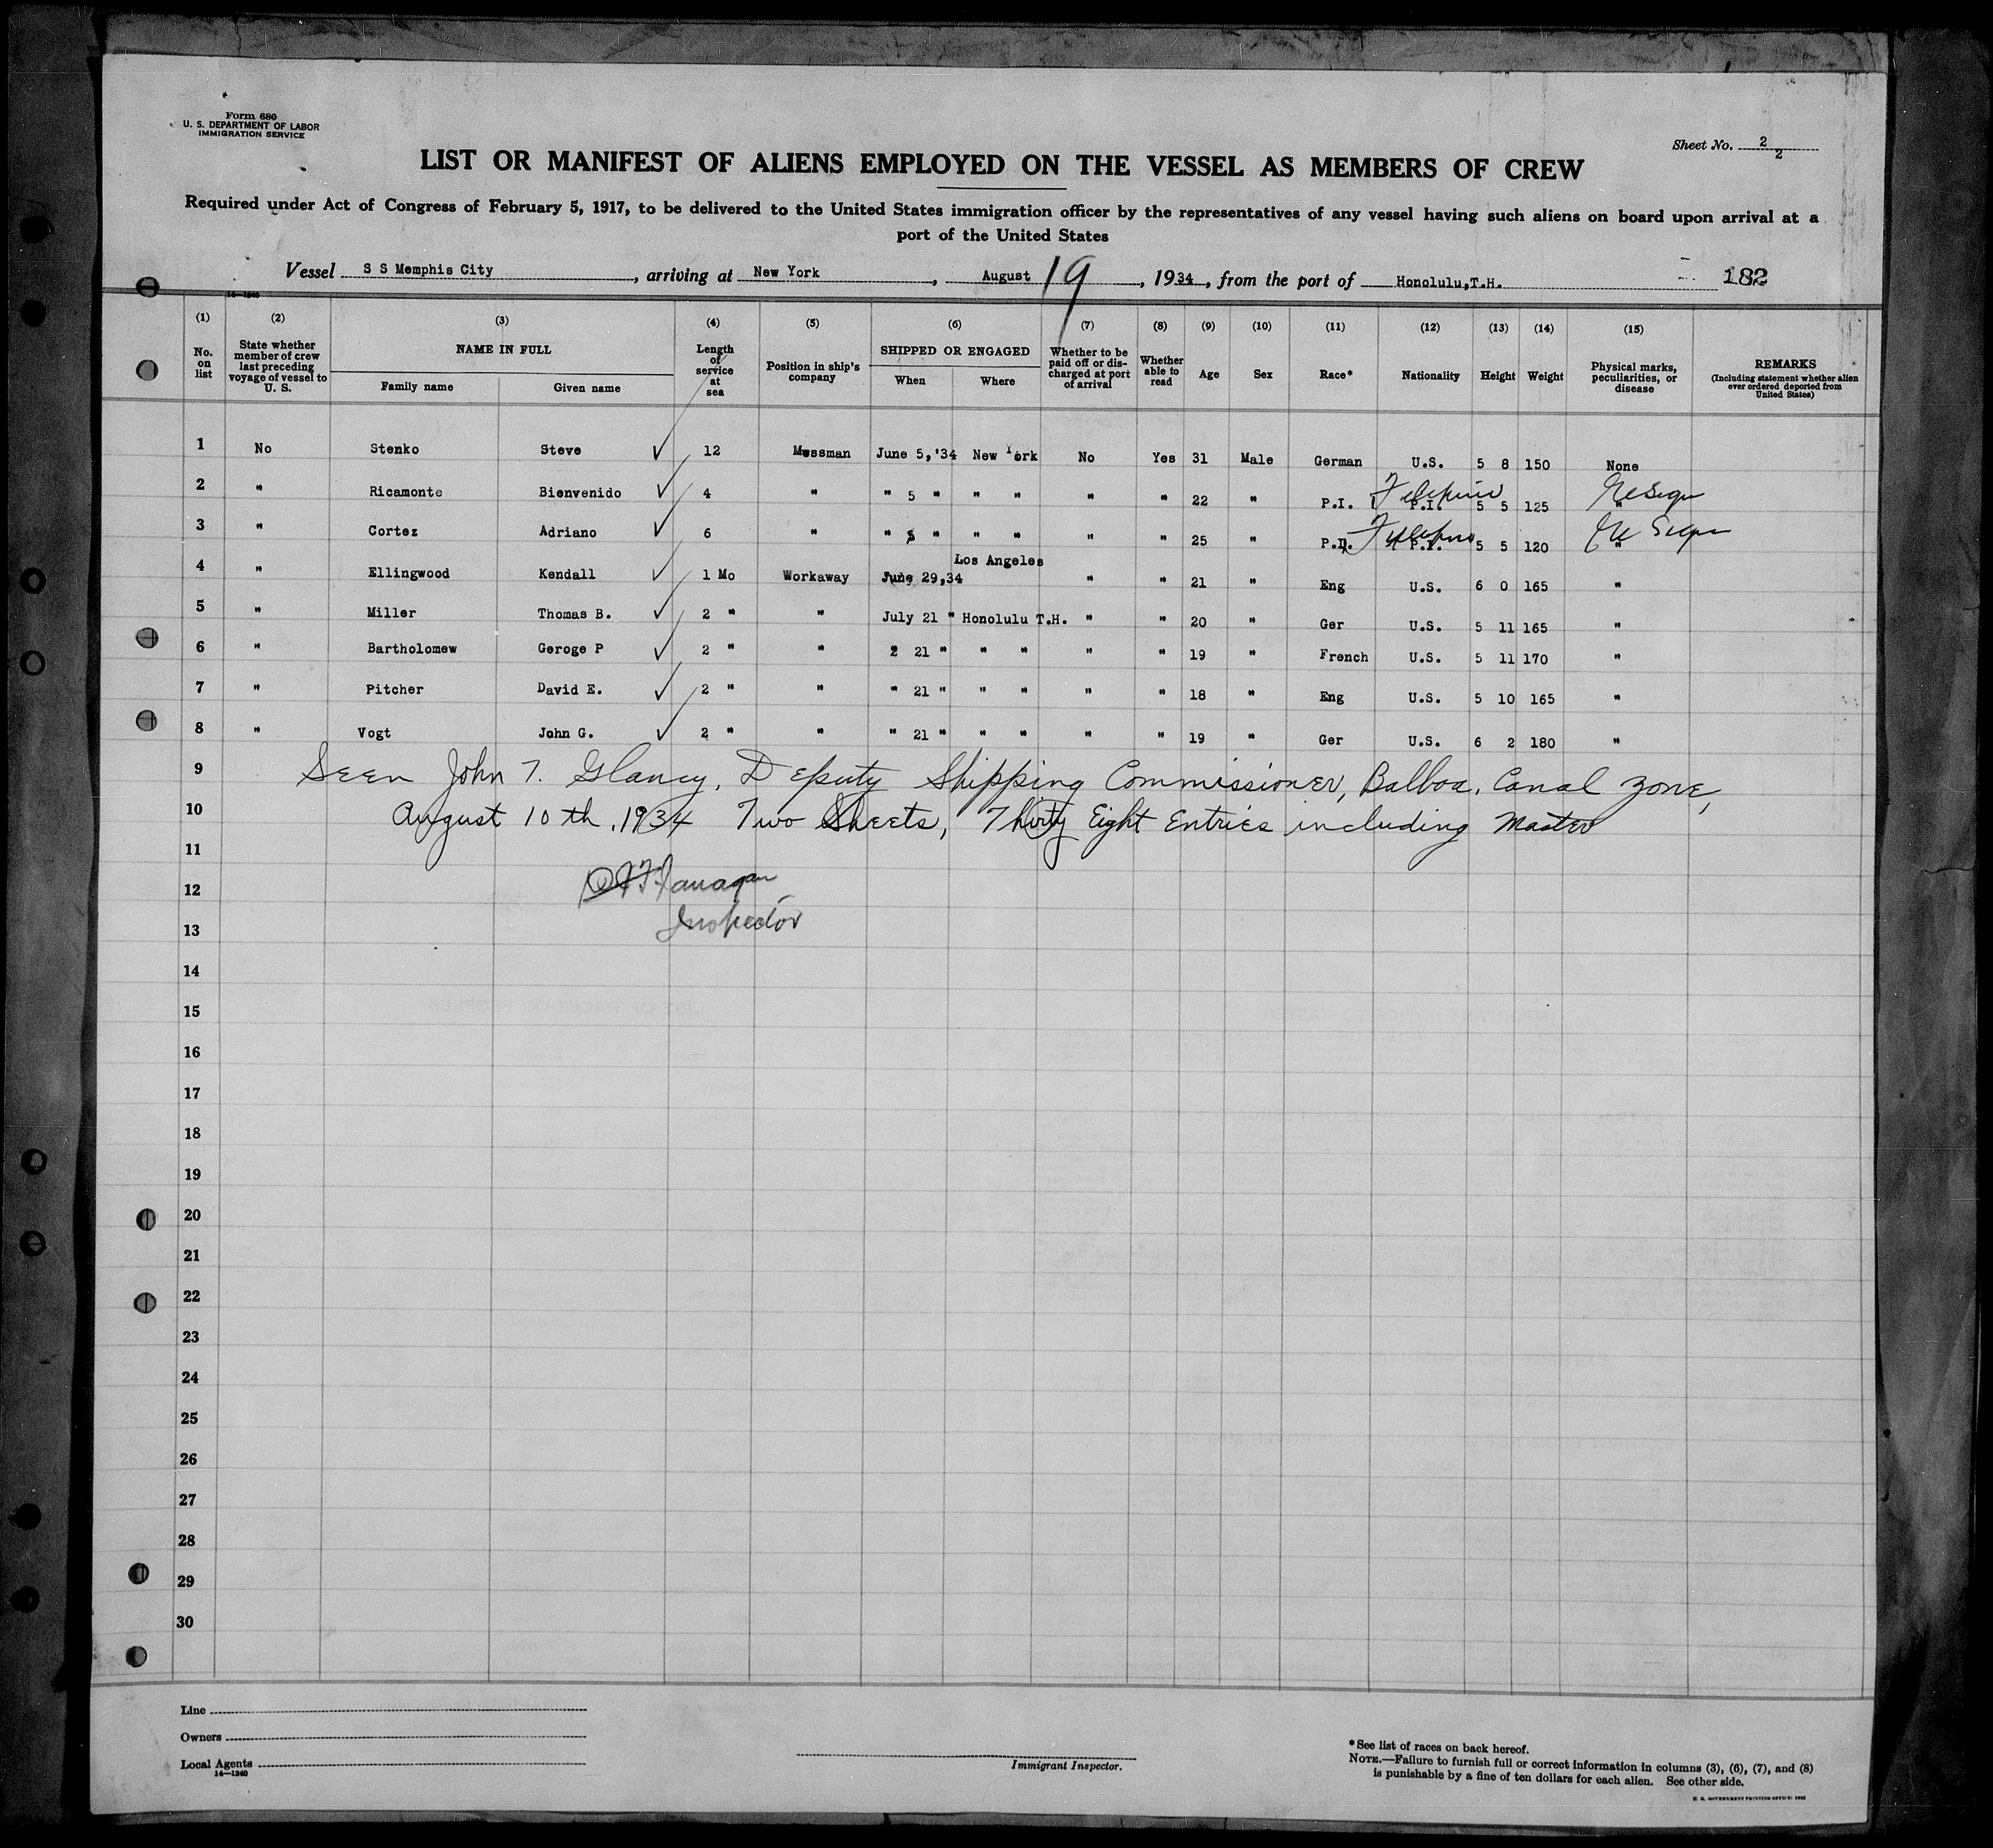 Form 680
U. S. DEPARTMENT OF LABOR
IMMIGRATION SERVICE
Sheet No. 2
2
LIST OR MANIFEST OF ALIENS EMPLOYED ON THE VESSEL AS MEMBERS OF CREW
Required under Act of Congress of February 5, 1917, to be delivered to the United States immigration officer by the representatives of any vessel having such aliens on board upon arrival at a
port of the United States
Vessel S S Memphis City, arriving at New York, August 19, 1934, from the port of Honolulu,T.H. 182
14—1240
(1) (2) (3) (4) (5) (6) (7) (8) (9) (10) (11) (12) (13) (14) (15)
No. on list State whether member of crew last preceding voyage of vessel to U. S. NAME IN FULL Family name Given name Length of service at sea Position in ship's company SHIPPED OR ENGAGED When Where Whether to be paid off or discharged at port of arrival Whether able to read Age Sex Race* Nationality Height Weight Physical marks, peculiarities, or disease REMARKS (Including statement whether alien ever ordered deported from United States)
1 No Stenko Steve ✓ 12 Messman June 5,'34 New York No Yes 31 Male German U.S. 5 8 150 None
2 " Ricamonte Bienvenido ✓ 4 " " 5 " " " " " 22 " P.I. Filipino P.I. 5 5 125 "
3 " Cortez Adriano ✓ 6 " " 5 " " " " " 25 " P.I. Filipino P.I. 5 5 120 "
4 " Ellingwood Kendall ✓ 1 Mo Workaway June 29,34 Los Angeles " " 21 " Eng U.S. 6 0 165 "
5 " Miller Thomas B. ✓ 2 " " July 21 " Honolulu T.H. " " 20 " Ger U.S. 5 11 165 "
6 " Bartholomew Geroge P ✓ 2 " " 2 21 " " " " " 19 " French U.S. 5 11 170 "
7 " Pitcher David E. ✓ 2 " " " 21 " " " " " 18 " Eng U.S. 5 10 165 "
8 " Vogt John G. ✓ 2 " " " 21 " " " " " 19 " Ger U.S. 6 2 180 "
9 Seen John T. Glancy, Deputy Shipping Commissioner, Balboa, Canal Zone,
10 August 10th, 1934 Two Sheets, Thirty Eight Entries including Master
11
12 Flanagan
13 Inspector
14
15
16
17
18
19
20
21
22
23
24
25
26
27
28
29
30
Line
Owners
Local Agents
14—1240
Immigrant Inspector.
*See list of races on back hereof.
NOTE.—Failure to furnish full or correct information in columns (3), (6), (7), and (8)
is punishable by a fine of ten dollars for each alien. See other side.
U. S. GOVERNMENT PRINTING OFFICE: 1932